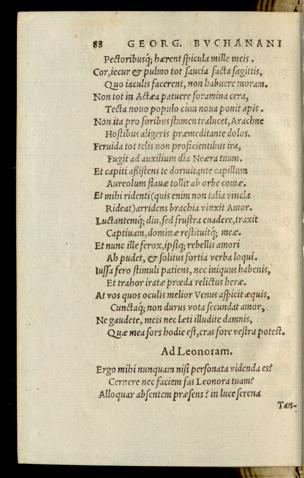 88 GEORG. BVCHANANI
Pectoribusq; hærent spicula mille meis.
Cor, iecur & pulmo tot saucia facta sagittis,
Quo iaculis facerent, non habuere moram.
Non tot in Actæa patuere foramina cera,
Tecta nouo populo cùm noua ponit apis.
Non ita pro foribus stamen traluceτ, Arachne
Hostibus aligeris præmeditante dolos.
Feruida tot telis non proficientibus ira,
Fugit ad auxilium dia Neæra tuum.
Et capiti assistens te dormitante capillum
Aureolum flauæ tollit ab orbe comæ.
Et mihi ridenti (quis enim non talia vincla
Rideat) arridens brachia vinxit Amor.
Luctantemq; diu, sed frustra euadere, traxit
Captiuum, dominæ restituitq; meæ.
Et nunc ille ferox, ipsiq; rebellis amori
Ah pudet, & solitus fortia verba loqui.
Iussa fero stimuli patiens, nec iniquus habenis,
Et trahor iratæ præda relictus heræ.
At vos quos oculis melior Venus aspicit æquis,
Cunctaq; non durus vota secundat amor,
Ne gaudete, meis nec læti illudite damnis,
Quæ mea sors hodie est, cras fore vestra potest.
Ad Leonoram.
Ergo mihi nunquam nisi personata videnda es?
Cernere nec faciem fas Leonora tuam?
Alloquar absentem præsens? in luce serena
Tan-